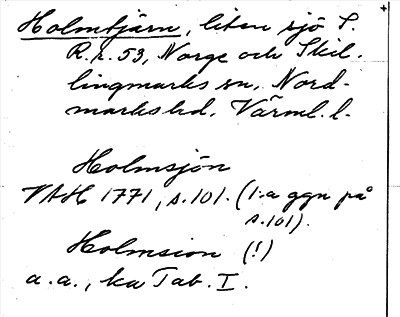 Holmtjärn, liten sjö S.
R.r. 53, Norge och Skil-
lingmarks sn, Nord-
marks hd, Värml. l.
Holmsjön
VAH 1771, s.101. (1:a ggn på
s.101).
Holmsion (!)
a.a., ka Tab. I.